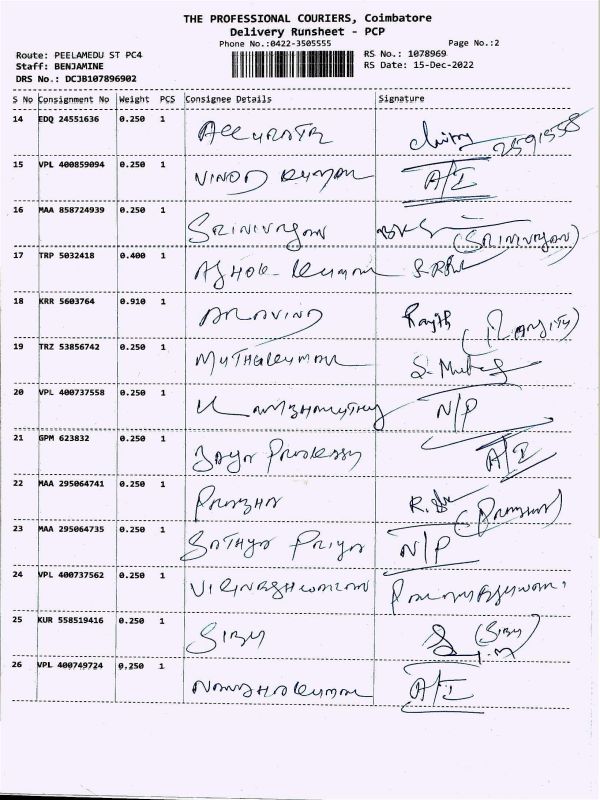 THE PROFESSIONAL COURIERS, Coimbatore
Delivery Runsheet - PCP
Phone No.:0422-3505555 Page No.:2
Route: PEELAMEDU ST PC4 RS No.: 1078969
Staff: BENJAMINE RS Date: 15-Dec-2022
DRS No.: DCJB107896902
S No Consignment No Weight PCS Consignee Details Signature
14 EDQ 24551636 0.250 1 ACCURATE
15 VPL 400859094 0.250 1 VINOD KUMAR A/I
16 MAA 858724939 0.250 1 SRINIVASAN (SRINIVASAN)
17 TRP 5032418 0.400 1 ASHOK-KUMAR
18 KRR 5603764 0.910 1 ARAVIND
19 TRZ 53856742 0.250 1 MUTHUKUMAR
20 VPL 400737558 0.250 1 N/P
21 GPM 623832 0.250 1 JAYA PRAKASH A/I
22 MAA 295064741 0.250 1
23 MAA 295064735 0.250 1 SATHYA PRIYA N/P
24 VPL 400737562 0.250 1
25 KUR 558519416 0.250 1 SIBY (SIBY)
26 VPL 400749724 0.250 1 A/I